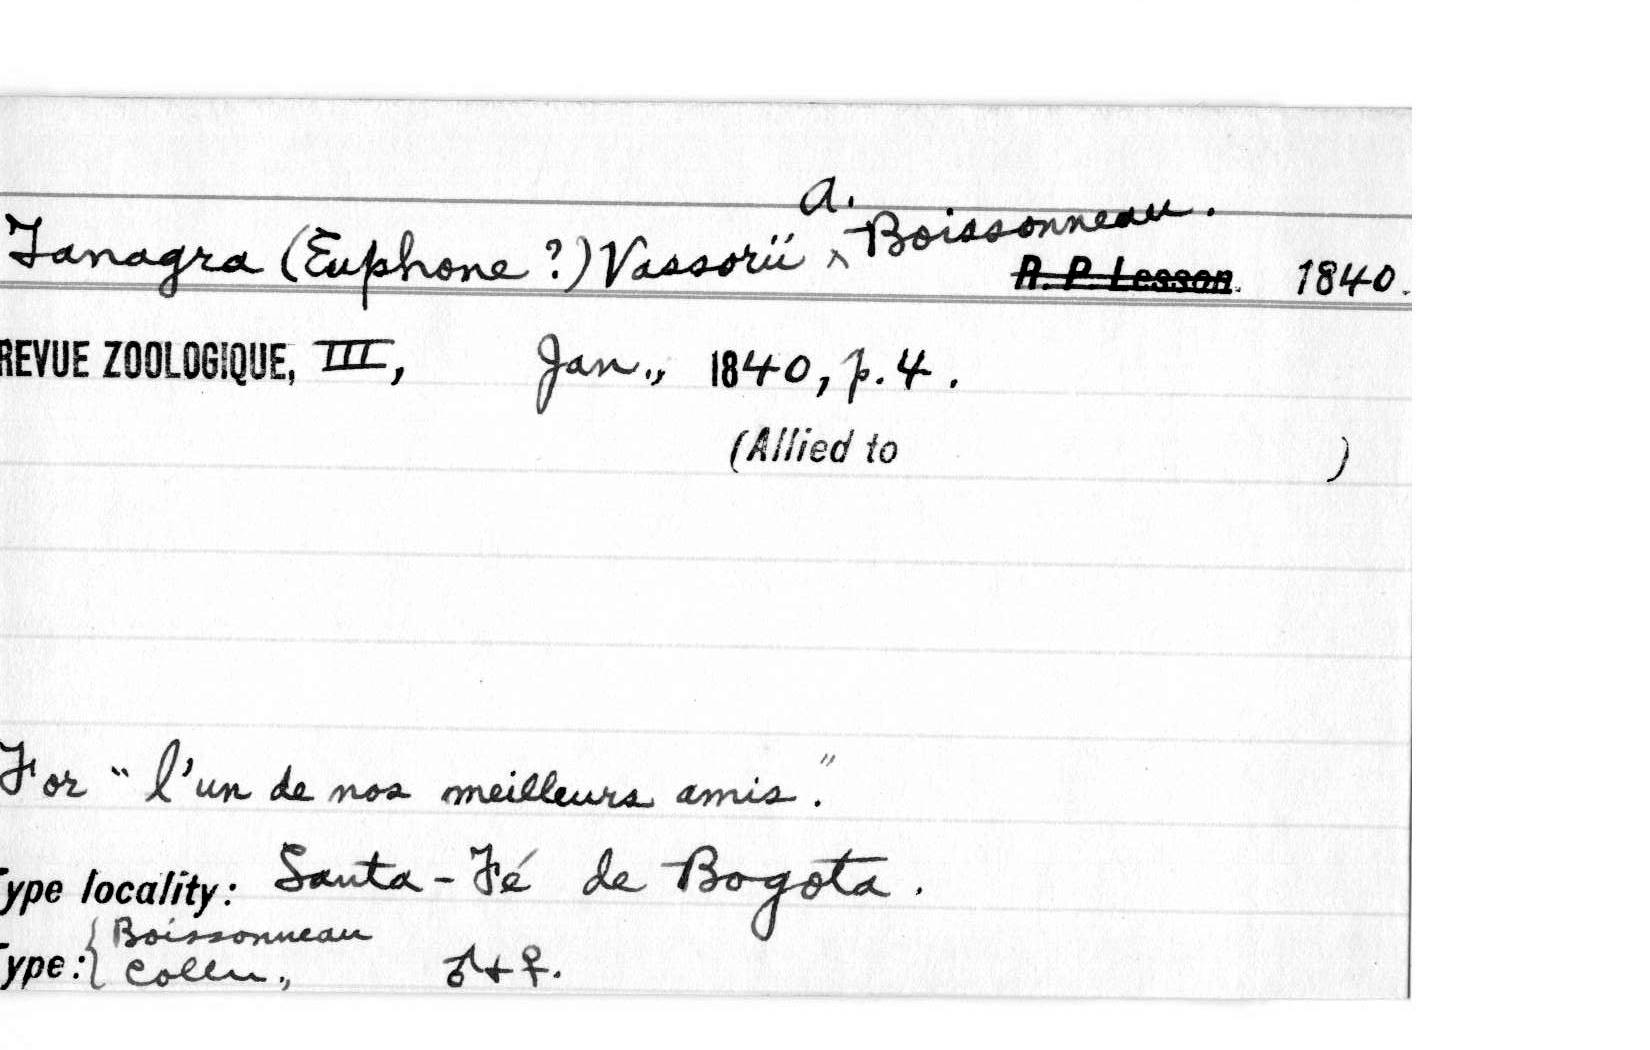 Tanagra (Euphone ?) Vassorii ^ A. Boissonneau. R. P. Lesson. 1840.
REVUE ZOOLOGIQUE, III, Jan., 1840, p. 4.
(Allied to )
For "l'un de nos meilleurs amis."
Type locality: Santa-Fé de Bogota.
Type: { Boissonneau
Colln., ♂ + ♀.